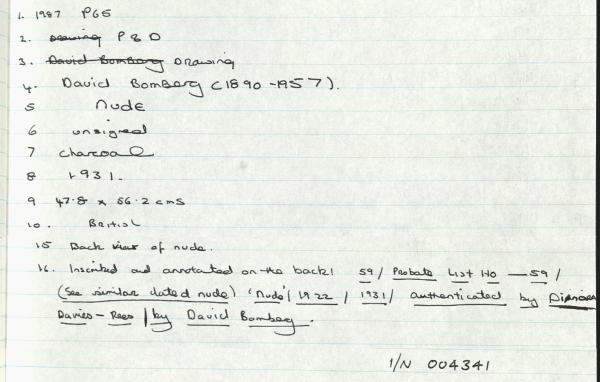 1. 1987 PG5
2. Drawing P & D
3. David Bomberg Drawing
4. David Bomberg (1890-1957).
5 Nude
6 unsigned
7 charcoal
8 1931.
9 47.8 x 56.2 cms
10. British
15 Back view of nude.
16. Inscribed and annotated on the back! 59/ Probate List No — 59/
(See similar dated nude) 'Nude'/ 1922 / 1931/ authenticated by
Davies-Rees / by David Bomberg.
1/N 004341